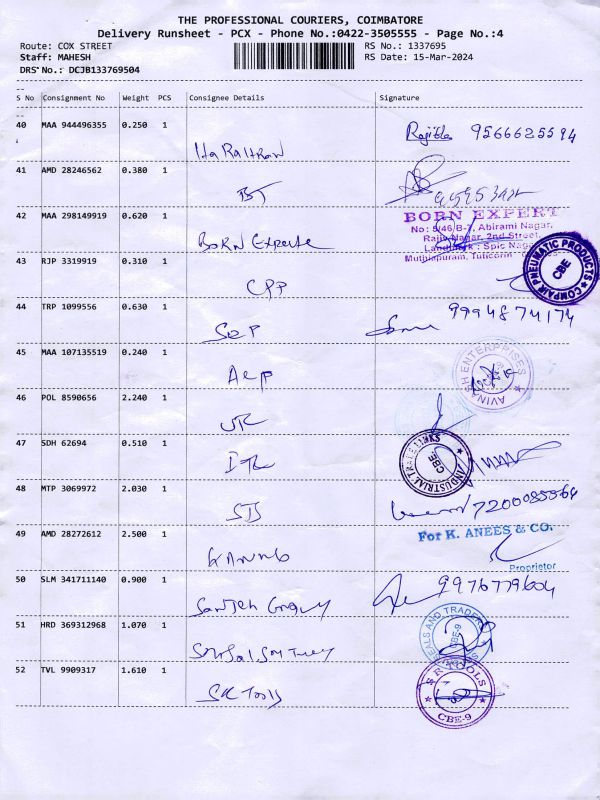 THE PROFESSIONAL COURIERS, COIMBATORE
Delivery Runsheet - PCX - Phone No.:0422-3505555 - Page No.:4
Route: COX STREET RS No.: 1337695
Staff: MAHESH RS Date: 15-Mar-2024
DRS No.: DCJB133769504
S No Consignment No Weight PCS Consignee Details Signature
40 MAA 944496355 0.250 1
9566625594
41 AMD 28246562 0.380 1
BT
42 MAA 298149919 0.620 1
BORN EXPERT
No: 5/46/B-7, Abirami Nagar,
Rajiv Nagar, 2nd Street,
Landmark : Spic Nagar
Muthiapuram, Tuticorin
Born Experte
43 RJP 3319919 0.310 1
COMPAIR PNEUMATIC PRODUCTS
CBE
CPP
44 TRP 1099556 0.630 1
9994874174
SEP
45 MAA 107135519 0.240 1
AVINASH ENTERPRISES
AEP
46 POL 8590656 2.240 1
47 SDH 62694 0.510 1
INDUSTRIAL TRADE LINKS
CBE.
ITL
48 MTP 3069972 2.030 1
7200085564
STS
49 AMD 28272612 2.500 1
For K. ANEES & CO.
Proprietor
50 SLM 341711140 0.900 1
9976779604
51 HRD 369312968 1.070 1
SEALS AND TRADERS
CBE-9
52 TVL 9909317 1.610 1
SR TOOLS
CBE-9
SR Tools